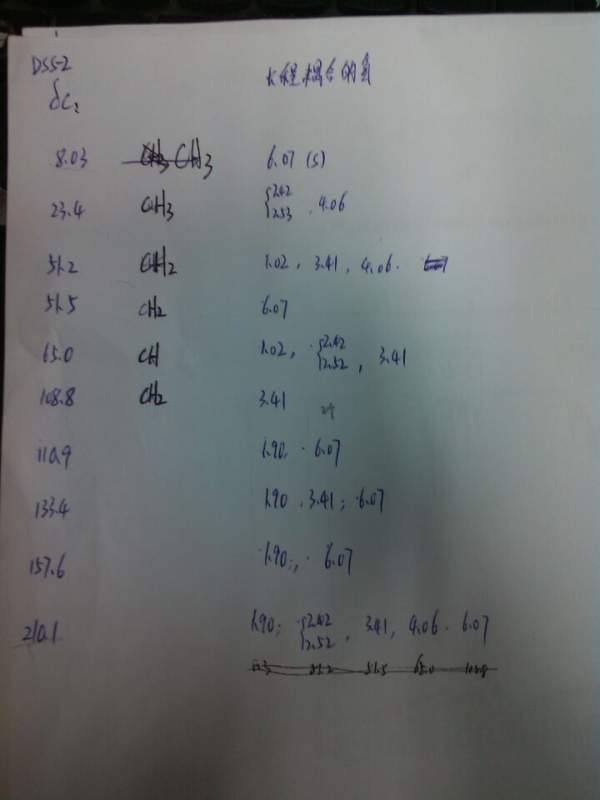 DSS-2
δC₂ 长程耦合的氢
8.03 CH3 6.07 (s)
23.4 CH3 { 2.42 2.53 , 4.06
51.2 CH2 1.02, 3.41, 4.06.
51.5 CH2 6.07
65.0 CH 1.02, { 2.42 2.52 , 3.41
108.8 CH2 3.41
110.9 1.90, 6.07
133.4 1.90, 3.41; 6.07
157.6 1.90, 6.07
210.1 1.90; { 2.42 2.52 , 3.41, 4.06. 6.07
51.2 51.5 65.0